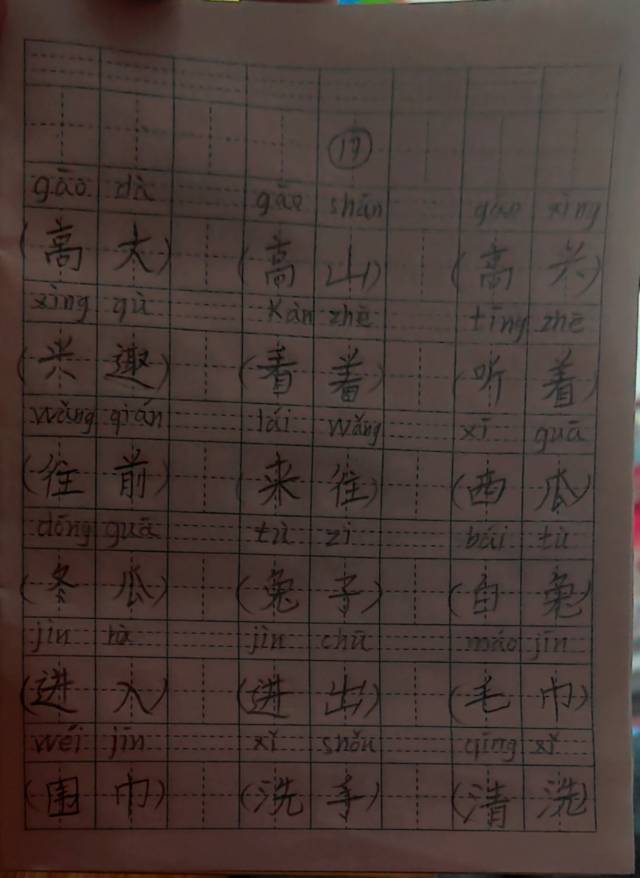 17
gāo dà gāo shān gāo xìng
(高大) (高山) (高兴)
xìng qù kàn zhē tīng zhē
(兴趣) (看着) (听着)
wǎng qián lái wǎng xī guā
(往前) (来往) (西瓜)
dōng guā tù zi bái tù
(冬瓜) (兔子) (白兔)
jìn rù jìn chū máo jīn
(进入) (进出) (毛巾)
wéi jīn xǐ shǒu qīng xǐ
(围巾) (洗手) (清洗)